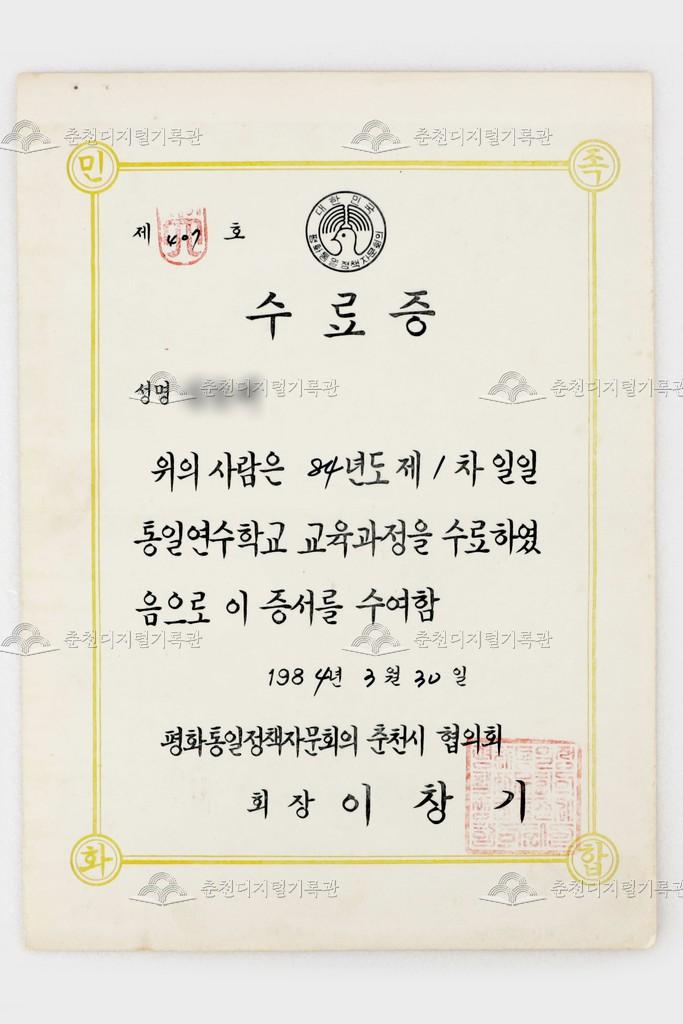 춘천디지털기록관 춘천디지털기록관
민 족
제 407 호
대한민국
평화통일정책자문회의
수료증
성명
춘천디지털기록관 춘천디지털기록관
위의 사람은 84년도 제 1 차 일일
통일연수학교 교육과정을 수료하였
음으로 이 증서를 수여함
춘천디지털기록관 춘천디지털기록관
1984년 3월 30일
평화통일정책자문회의 춘천시 협의회
회장 이창기
화 합
춘천디지털기록관 춘천디지털기록관